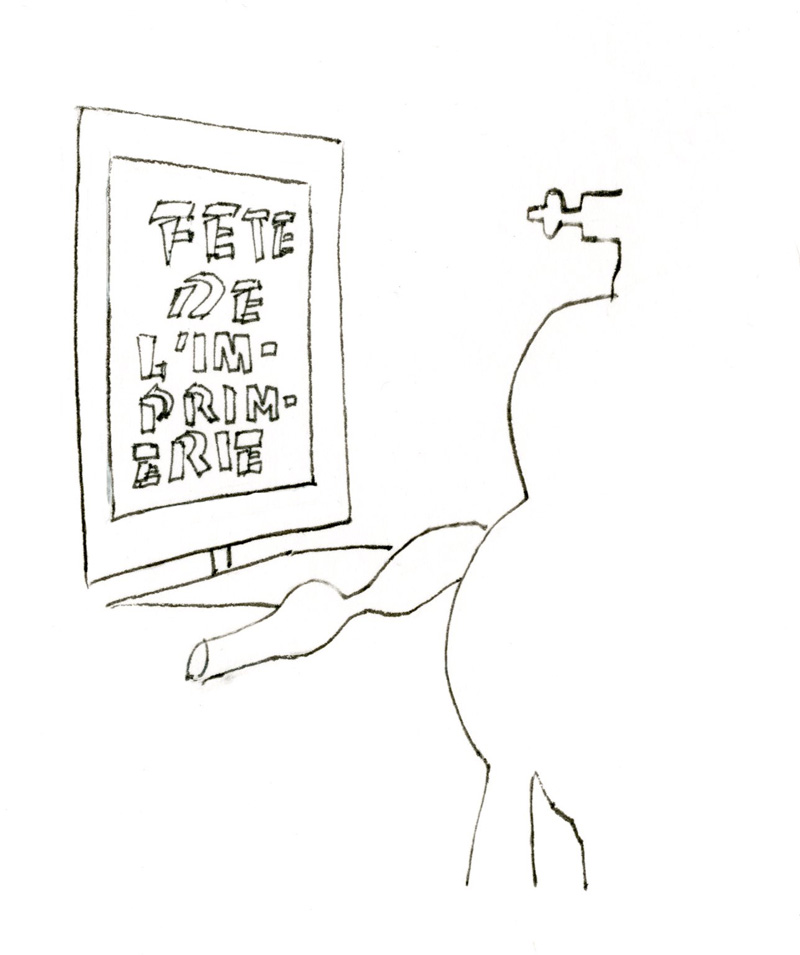 FÊTE
DE
L'IM-
PRIM-
ERIE